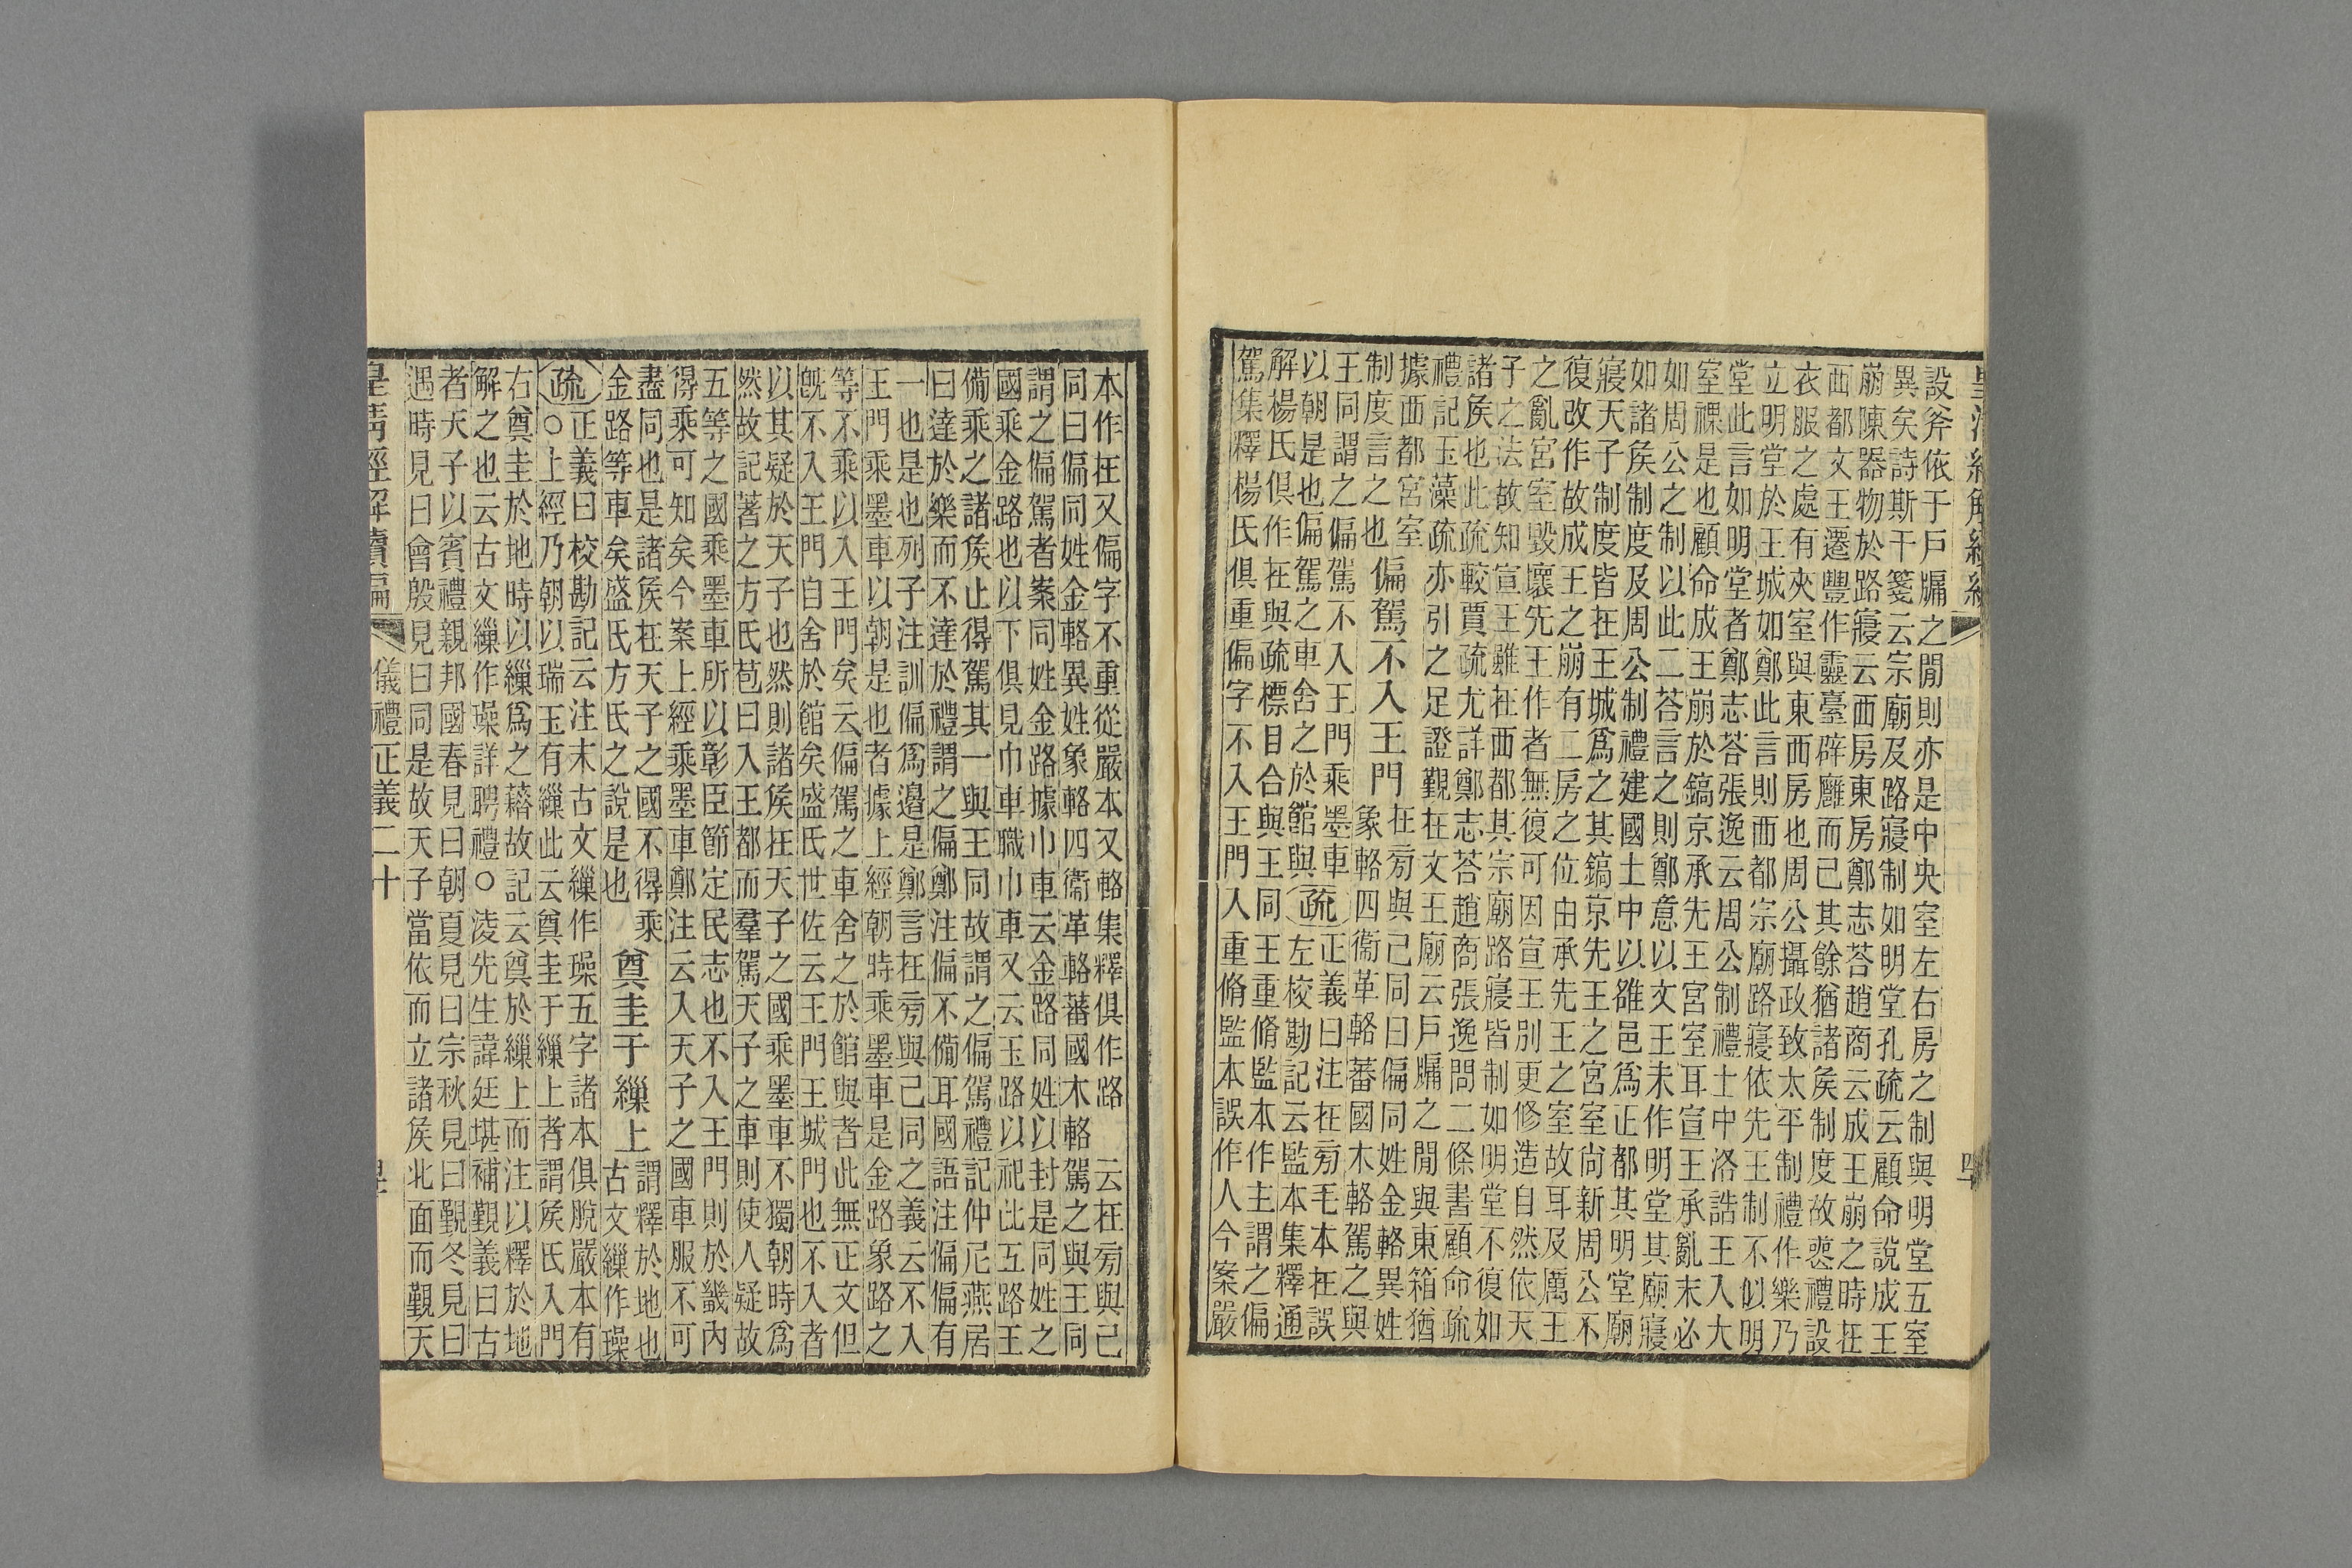 設斧依于戶牖之閒則亦是中央室左右房之制與明堂五室
異矣詩斯干箋云宗廟及路寢制如明堂孔疏云顧命說成王
崩陳器物於路寢云西房東房鄭志荅趙商云成王崩之時在
西都文王遷豐作靈臺辟廱而已其餘猶諸矦制度故喪禮設
衣服之處有夾室與東西房也周公攝政致太平制禮作樂乃
立明堂於王城如鄭此言則西都宗廟路寢依先王制不似明
堂此言如明堂者鄭志荅張逸云周公制禮土中洛誥王入大
室祼是也顧命成王崩於鎬京承先王宮室耳宣王承亂末必
如周公之制以此二荅言之則鄭意以文王未作明堂其廟寢
如諸矦制度及周公制禮建國土中以雒邑爲正都其明堂廟
寢天子制度皆在王城爲之其鎬京先王之宮室尚新周公不
復改作故成王之崩有二房之位由承先王之室故耳及厲王
之亂宮室毀壞先王作者無復可因宣王別更修造自然依天
子之法故知宣王雖在西都其宗廟路寢皆制如明堂不復如
諸矦也此疏較賈疏尤詳鄭志荅趙商張逸問二條書顧命疏
禮記玉藻疏亦引之足證覲在文王廟云戶牖之閒與東箱猶
據西都宮室
制度言之也
偏駕不入王門
在旁與己同曰偏同姓金輅異姓
象輅四衞革輅蕃國木輅駕之與
王同謂之偏駕不入王門乘墨車
以朝是也偏駕之車舍之於館與
疏
正義曰注在旁毛本在誤
左校勘記云監本集釋通
解楊氏俱作在與疏標目合與王同王重脩監本作主謂之偏
駕集釋楊氏俱重偏字不入王門人重脩監本誤作人今案嚴
本作在又偏字不重從嚴本又輅集釋俱作路　云在旁與己
同曰偏同姓金輅異姓象輅四衞革輅蕃國木輅駕之與王同
謂之偏駕者案同姓金路據巾車云金路同姓以封是同姓之
國乘金路也以下俱見巾車職巾車又云玉路以祀此五路王
備乘之諸矦止得駕其一與王同故謂之偏駕禮記仲尼燕居
曰達於樂而不達於禮謂之偏鄭注偏不備耳國語注偏偏有
一也是也列子注訓偏爲邊是鄭言在旁與己同之義云不入
王門乘墨車以朝是也者據上經朝時乘墨車是金路象路之
等不乘以入王門矣云偏駕之車舍之於館與者此無正文但
旣不入王門自舍於館矣盛氏世佐云王門王城門也不入者
以其疑於天子也然則諸矦在天子之國乘墨車不獨朝時爲
然故記著之方氏苞曰入王都而羣駕天子之車則使人疑故
五等之國乘墨車所以彰臣節定民志也不入王門則於畿內
得乘可知矣今案上經乘墨車鄭注云入天子之國車服不可
盡同也是諸矦在天子之國不得乘
金路等車矣盛氏方氏之說是也
奠圭于繅上
謂釋於地也
古文繅作璪
疏
○正義曰校勘記云注末古文繅作璪五字諸本俱脫嚴本有
○上經乃朝以瑞玉有繅此云奠圭于繅上者謂矦氏入門
右奠圭於地時以繅爲之藉故記云奠於繅上而注以釋於地
解之也云古文繅作璪詳聘禮○淩先生諱廷堪補覲義曰古
者天子以賓禮親邦國春見曰朝夏見曰宗秋見曰覲冬見曰
遇時見曰會殷見曰同是故天子當依而立諸矦北面而覲天
皇淸經解續編
儀禮正義二十